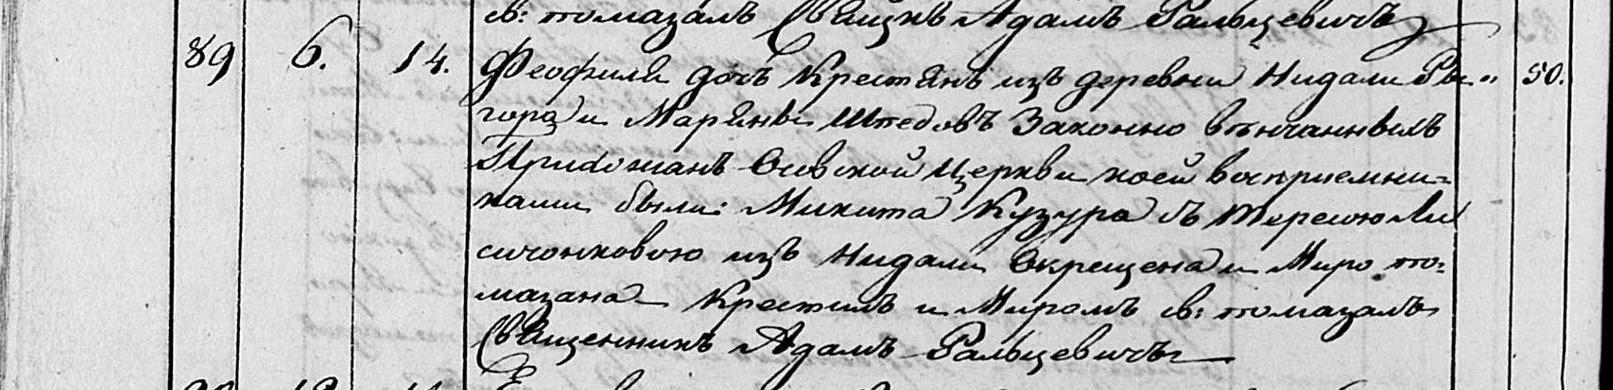 св: помазалъ Свящнкъ Адамъ Гальцевичъ
89 6. 14. Феофиля дочъ Крестянъ изъ деревни Нидали Гры- 50.
гора и Маряны Шпедовъ Законно вѣнчанныхъ
Прихожанъ Осовской Церкви коей восприемни=
ками были: Микита Кузура съ Тересою Ли
сичонковою изъ Нидали Окрещена и Миро по=
мазана Крестилъ и Миромъ св: помазалъ
Священникъ Адамъ Гальцевичъ